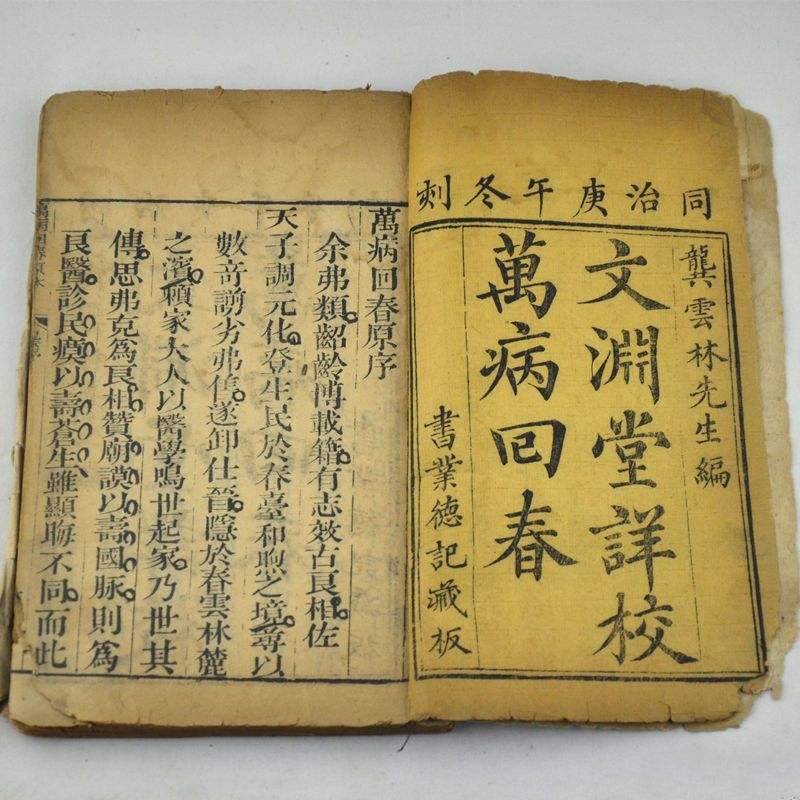 同治庚午冬刻
龔雲林先生編
文淵堂詳校
萬病回春
書業德記藏板
萬病回春原序
余弗類齠齡博載籍有志效古良相佐
天子調元化登生民於春臺和煦之境尋以
數竒謭劣弗售遂卸仕晉隱於春雲林麓
之濱賴家大人以醫學鳴世起家乃世其
傳思弗克為良相贊廟謨以壽國脉則為
良醫診民瘼以壽蒼生雖顯晦不同而此